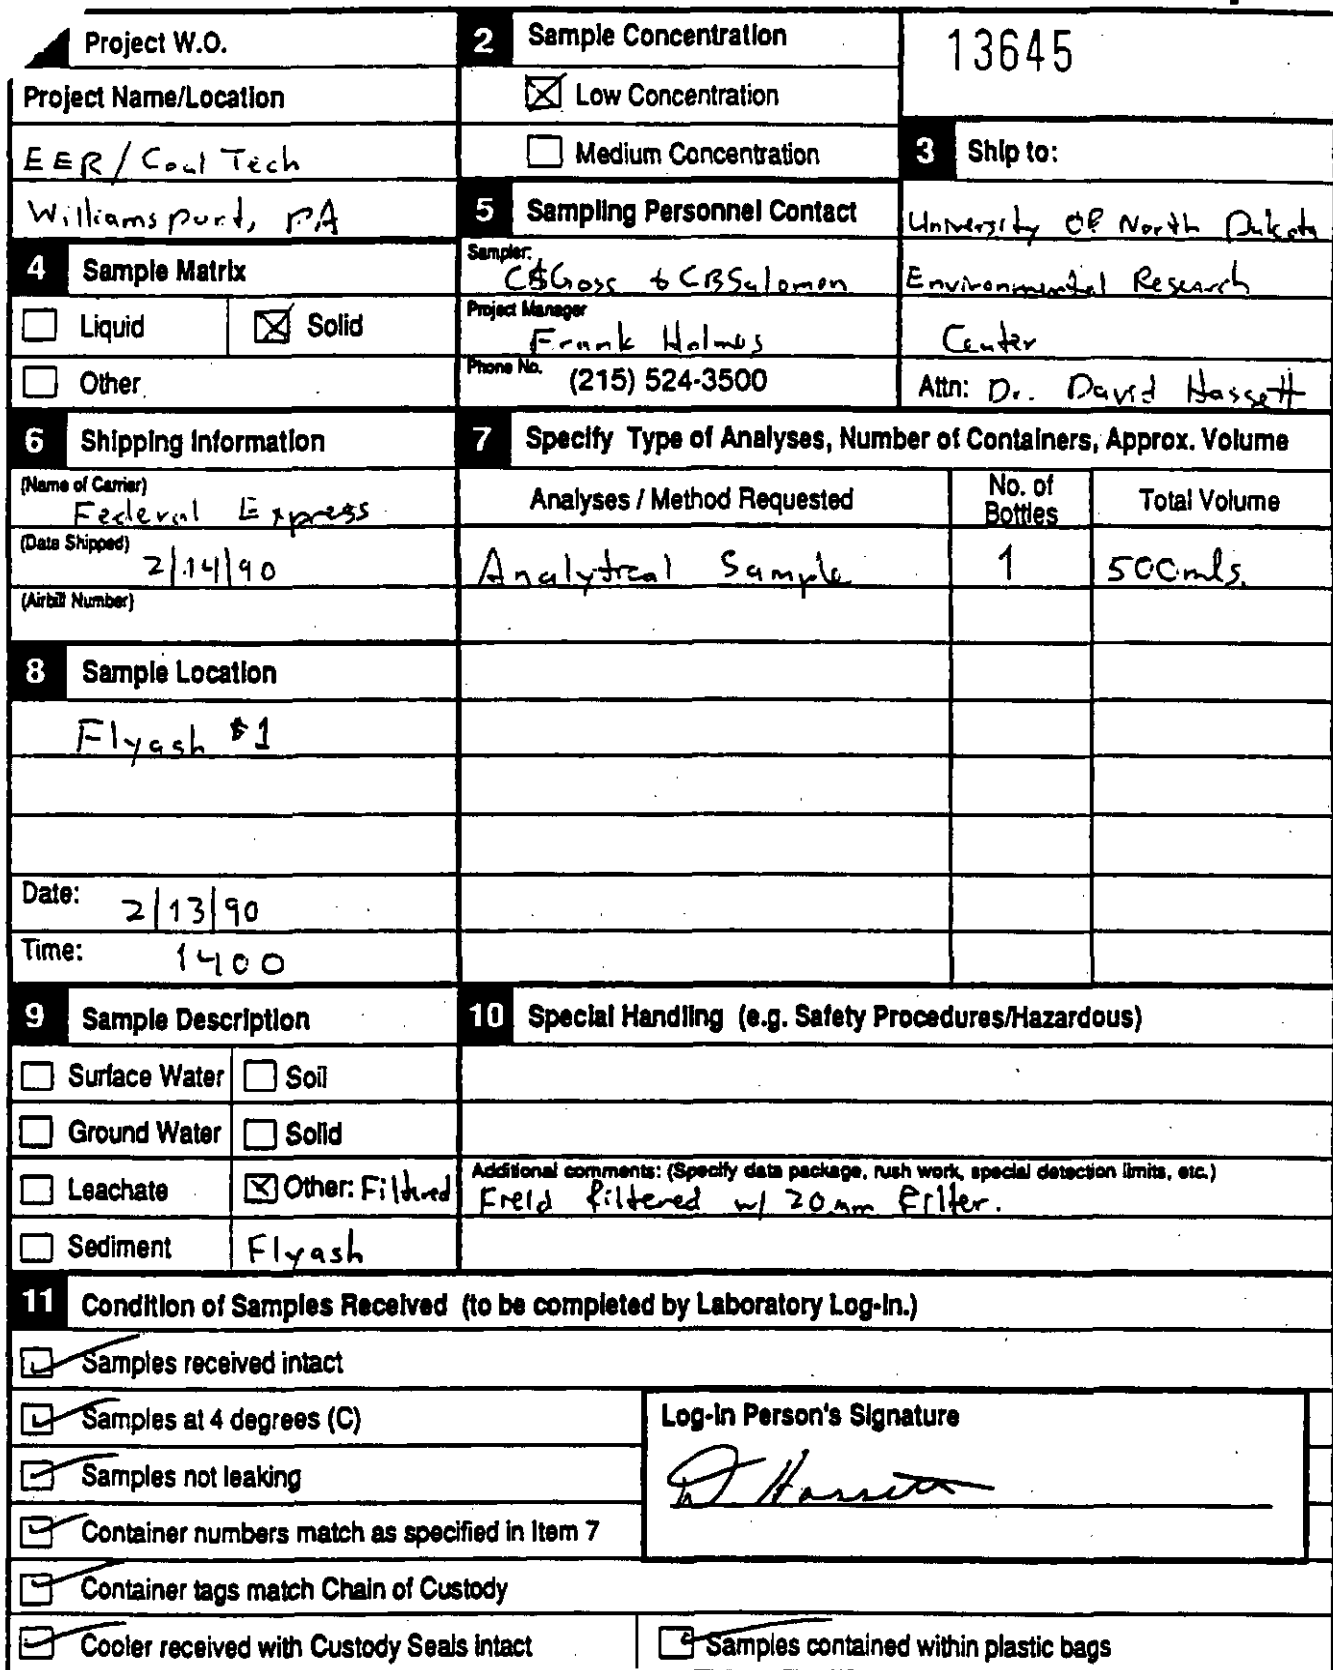 Project W.O.
Project Name/Location
EER/Coal Tech
Williamsport, PA
2 Sample Concentration
Low Concentration
Medium Concentration
13645
3 Ship to:
University of North Dakota
Environmental Research
Center
Attn: Dr. David Hassett
4 Sample Matrix
Liquid Solid
Other
5 Sampling Personnel Contact
Sampler:
CBGoss & CBSalomon
Project Manager
Frank Holmes
Phone No. (215) 524-3500
6 Shipping Information
(Name of Carrier)
Federal Express
(Date Shipped)
2/14/90
(Airbill Number)
7 Specify Type of Analyses, Number of Containers, Approx. Volume
Analyses / Method Requested No. of Bottles Total Volume
Analytical Sample 1 500mls.
8 Sample Location
Flyash #1
Date: 2/13/90
Time: 1400
9 Sample Description
Surface Water Soil
Ground Water Solid
Leachate Other: Filtered
Sediment Flyash
10 Special Handling (e.g. Safety Procedures/Hazardous)
Additional comments: (Specify data package, rush work, special detection limits, etc.)
Field filtered w/ 20 filter.
11 Condition of Samples Received (to be completed by Laboratory Log-In.)
Samples received intact
Samples at 4 degrees (C)
Samples not leaking
Container numbers match as specified in Item 7
Container tags match Chain of Custody
Cooler received with Custody Seals intact
Samples contained within plastic bags
Log-In Person's Signature
D Hassett